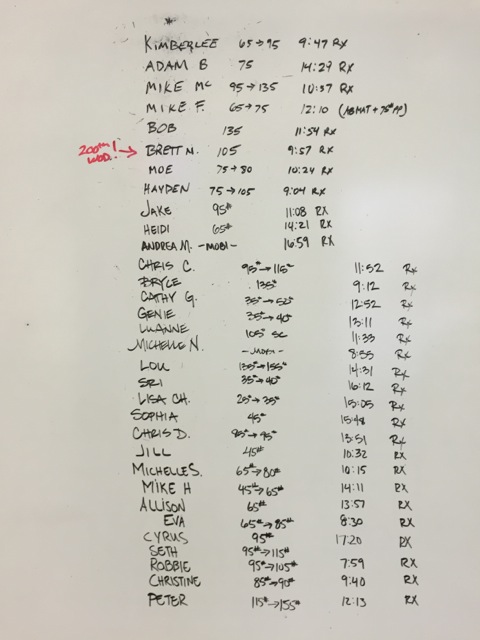 KIMBERLEE 65→95 9:47 RX
ADAM B 75 14:29 RX
MIKE MC 95→135 10:57 RX
MIKE F. 65→75 12:10 (ABMAT + 75# PP)
BOB 135 11:54 RX
200TH! WOD! → BRETT M. 105 9:57 RX
MOE 75→80 10:24 RX
HAYDEN 75→105 9:04 RX
JAKE 95# 11:08 RX
HEIDI 65# 14:21 RX
ANDREA M. -MOBI- 16:59 RX
CHRIS C. 95#→115# 11:52 Rx
BRYCE 135# 9:12 Rx
CATHY G. 35#→52# 12:52 Rx
GENIE 35#→40# 13:11 Rx
LUANNE 105# SC 11:33 Rx
MICHELLE N. -MOBI- 8:55 Rx
LOU 135#→155# 14:31 Rx
SRI 35#→40# 16:12 Rx
LISA CH. 25#→35# 15:05 Rx
SOPHIA 45# 15:48 Rx
CHRIS D. 85#→95# 13:51 Rx
JILL 45# 10:32 RX
MICHELLE S. 65#→80# 10:15 RX
MIKE H 45#→65# 14:11 RX
ALLISON 65# 13:57 RX
EVA 65#→85# 8:30 RX
CYRUS 95# 17:20 RX
SETH 95#→115#
ROBBIE 95#→105# 7:59 RX
CHRISTINE 85#→90# 9:40 RX
PETER 115#→155# 12:13 RX